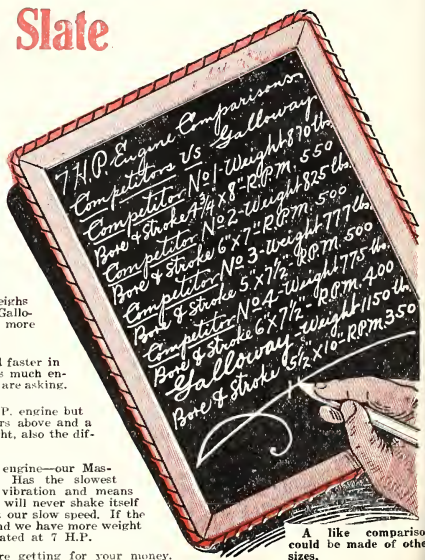 Slate
7 H.P. Engine Comparisons
Competitors Vs Galloway
Competitor No 1-Weight 870 lbs.
Bore & Stroke 4¾ x 8" R.P.M. 550
Competitor No 2-Weight 825 lbs.
Bore & Stroke 6" x 7" R.P.M. 500
Competitor No 3-Weight 777 lbs.
Bore & Stroke 5" x 7½" R.P.M. 500
Competitor No 4-Weight 775 lbs.
Bore & Stroke 6" x 7½" R.P.M. 400
Galloway-Weight 1150 lbs.
Bore & Stroke 5½ x 10" RPM 350
eighs
Gallo-
more
faster in
s much en-
are asking.
P. engine but
rs above and a
ht, also the dif-
engine—our Mas-
Has the slowest
vibration and means
will never shake itself
our slow speed. If the
nd we have more weight
ated at 7 H.P.
re getting for your money.
A like compariso
could be made of othe
sizes.